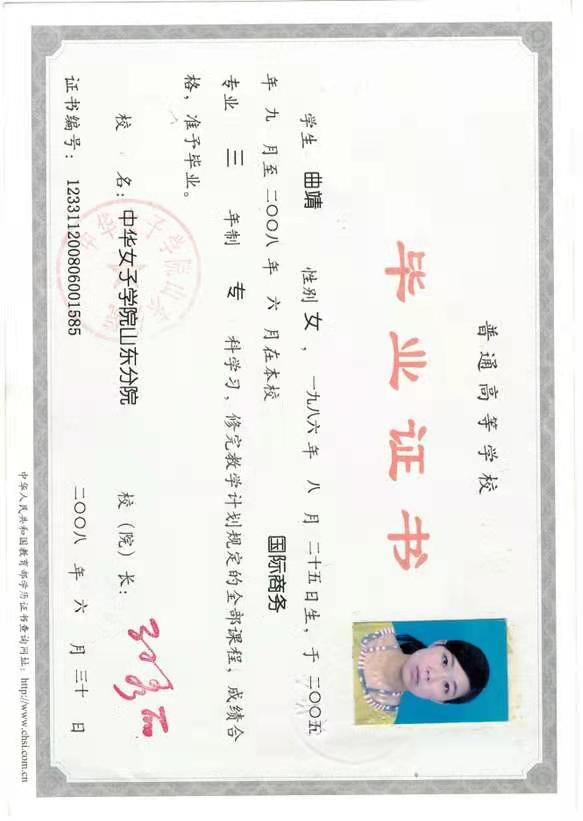 普通高等学校
毕业证书
学生 曲靖 性别 女，一九八六年 八 月 二十五日生，于 二〇〇五
年 九 月至 二〇〇八 年 六 月在本校 国际商务
专业 三 年制 专 科学习，修完教学计划规定的全部课程，成绩合
格，准予毕业。
校 名：中华女子学院山东分院 校（院）长：
证书编号：123311200806001585 二〇〇八 年 六 月 三十 日
中华人民共和国教育部学历证书查询网址：http://www.chsi.com.cn
中华女子学院山东分院